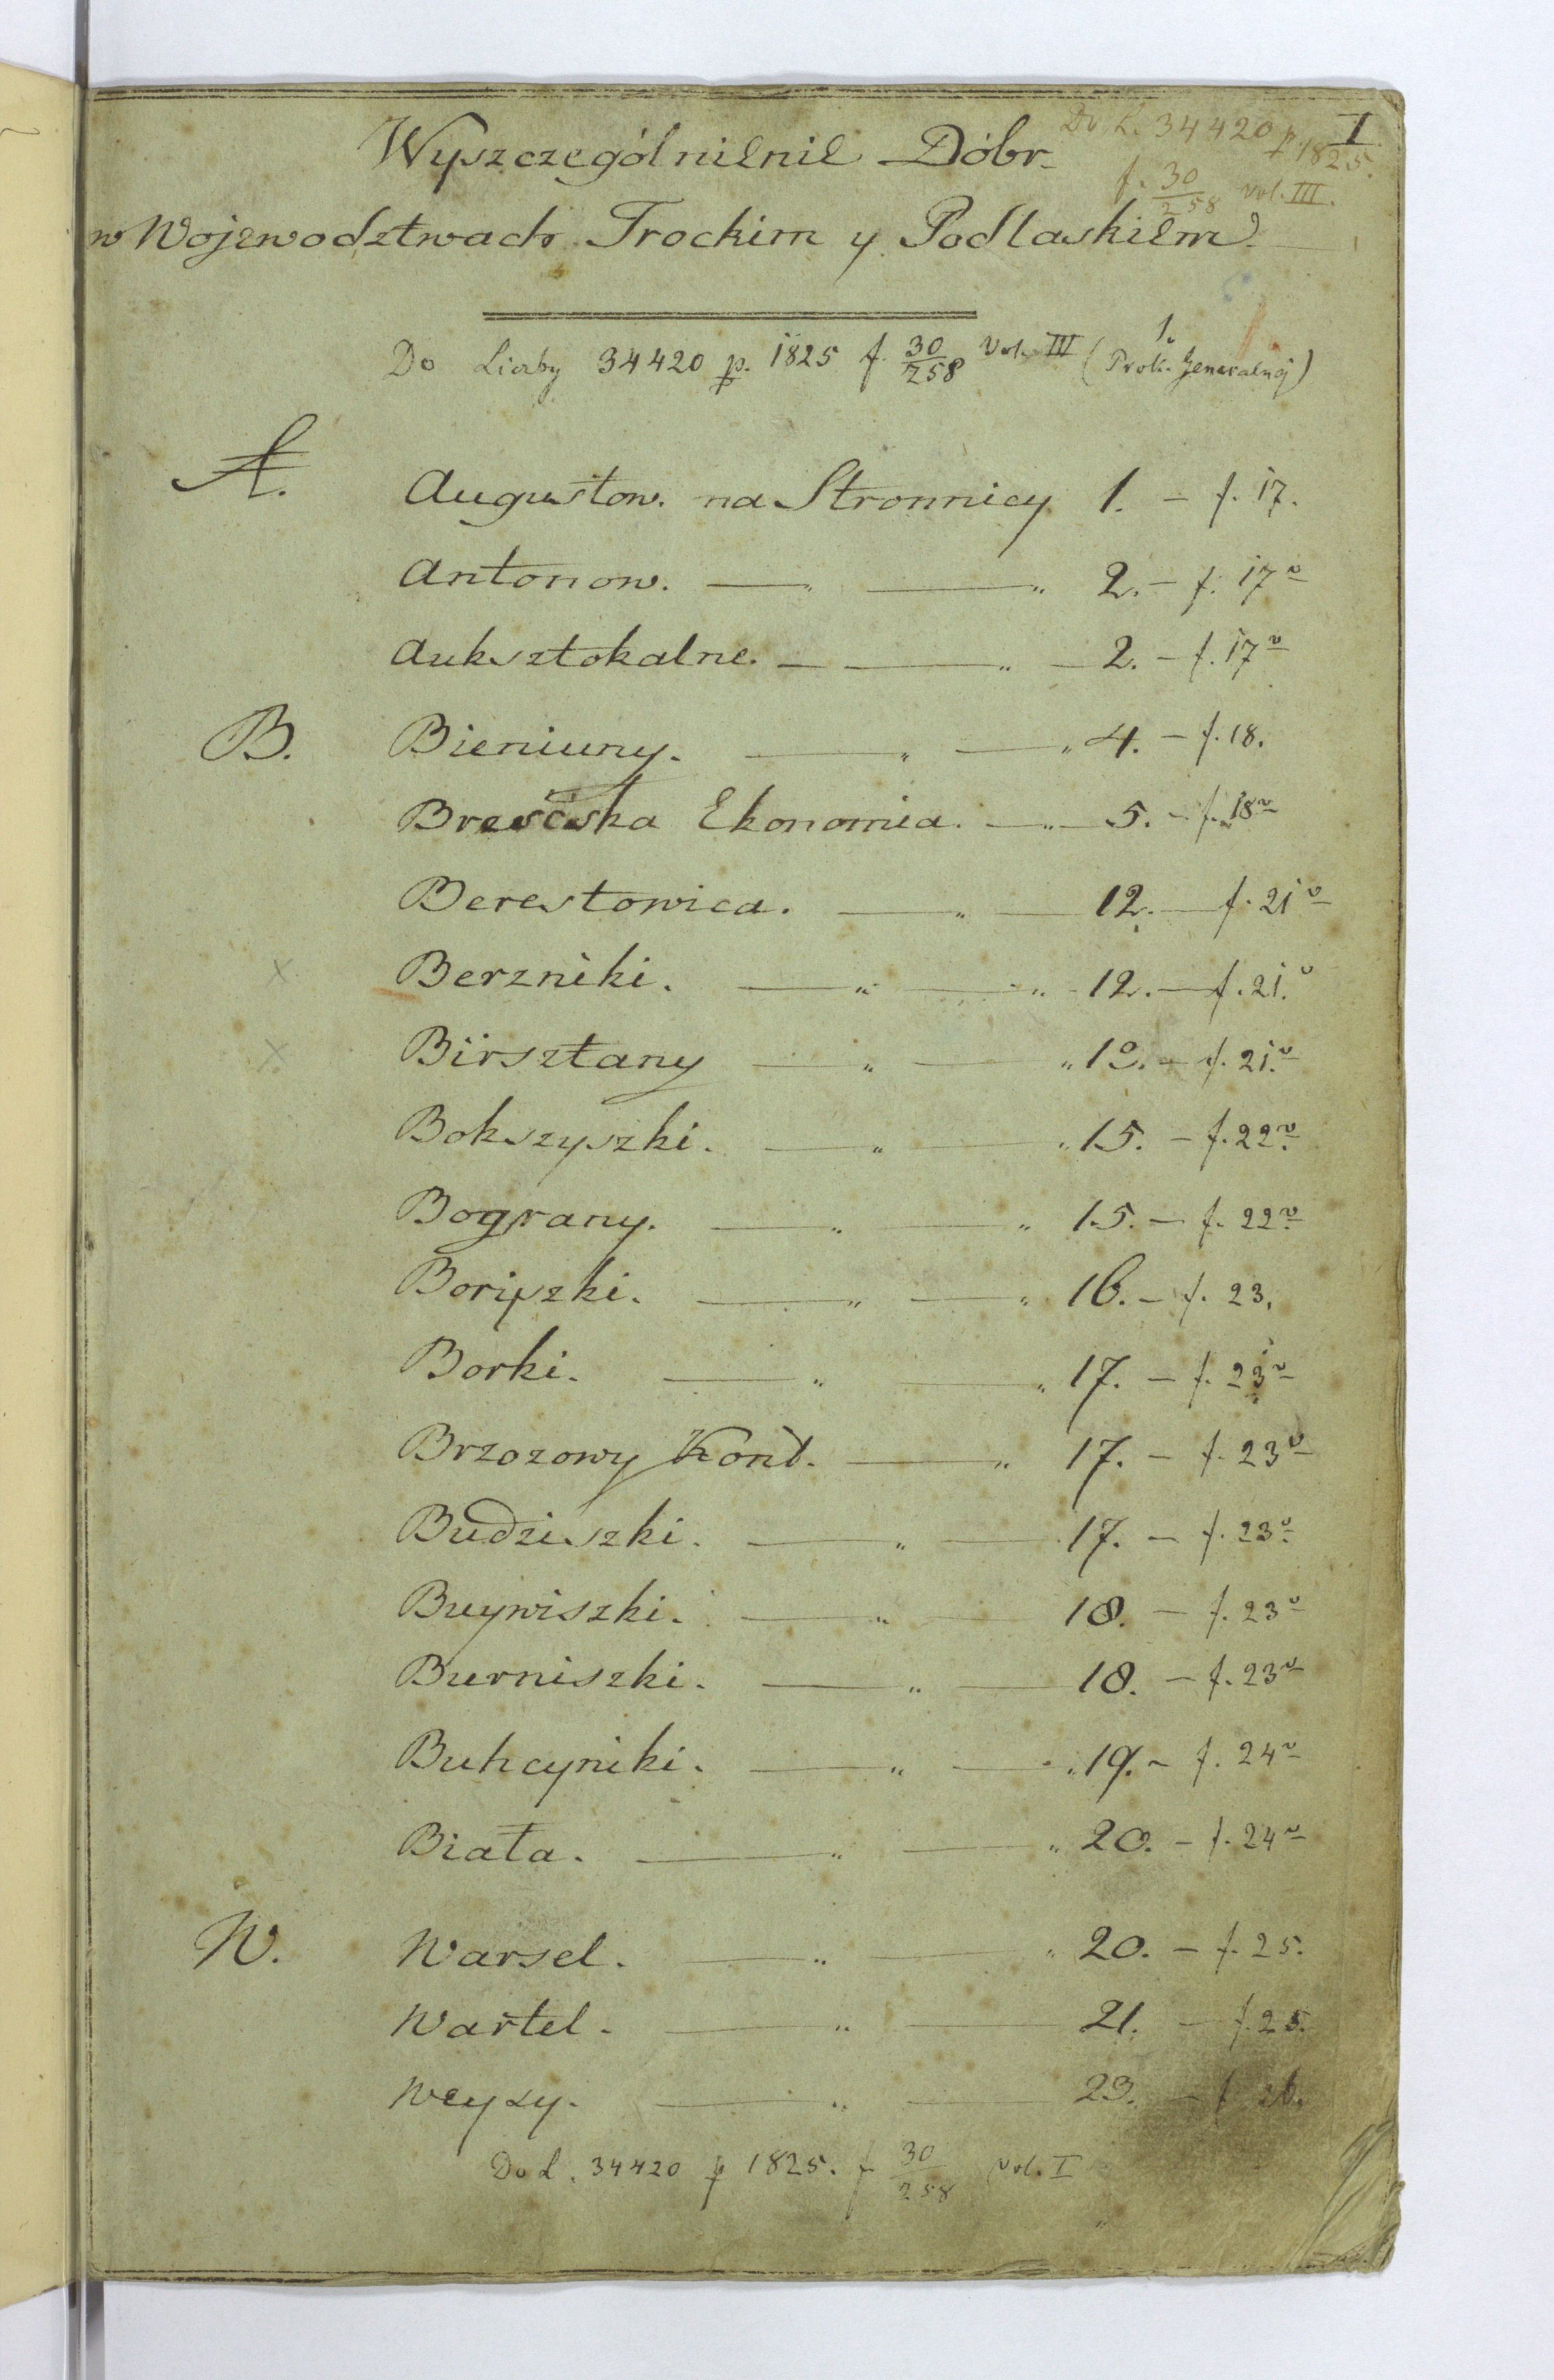 Do L. 34420 p 1825. I
f. 30/258 vol. III.
Wyszczególnienie Dóbr
w Wojewodztwach Trockim y Podlaskiem
1.
Do Liczby 34420 p. 1825 f. 30/258 Vol. III (Prok. Jeneralnej)
A. Augustow. na Stronnicy 1. – f. 17.
Antonow. — „ — „ 2. – f. 17v
Auksztokalne. — — „ — 2. – f. 17v
B. Bieniuny. — „ — „ 4. – f. 18.
Brescska Ekonomia. — „ — 5. – f. 18v
Berestowica. — „ — 12. — f. 21v
Berzniki. — „ — „ 12. — f. 21.v
Birsztany — „ — „ 13. – f. 21.v
Bokszyszki. — „ — „ 15. – f. 22v.
Bograny. — „ — „ 15. – f. 22v.
Boryszki. — „ — „ 16. – f. 23.
Borki. — „ — „ 17. – f. 23v
Brzozowy Kont. — „ 17. – f. 23v
Budziszki. — „ — 17. – f. 23v.
Buywiszki. — „ — 18. – f. 23v
Burniszki. — „ — 18. – f. 23v
Buhcyniki. — „ — „ 19. – f. 24v
Biała. — „ — „ 20. – f. 24v
W. Warsel. — „ — „ 20. – f. 25.
Wartel. — „ — 21. – f. 25.
Weysy. — „ — 23. – f. 26.
Do L. 34420 p 1825. f. 30/258 vol. I